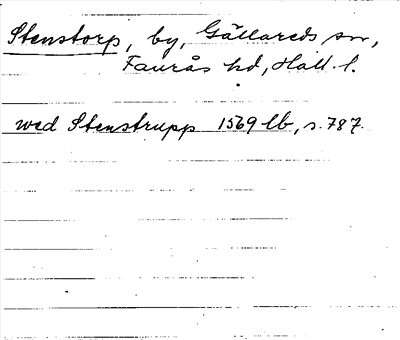 Stenstorp, by, Gällareds sn,
Faurås hd, Hall. l.
wed Stenstrupp 1569 lb, s. 787.